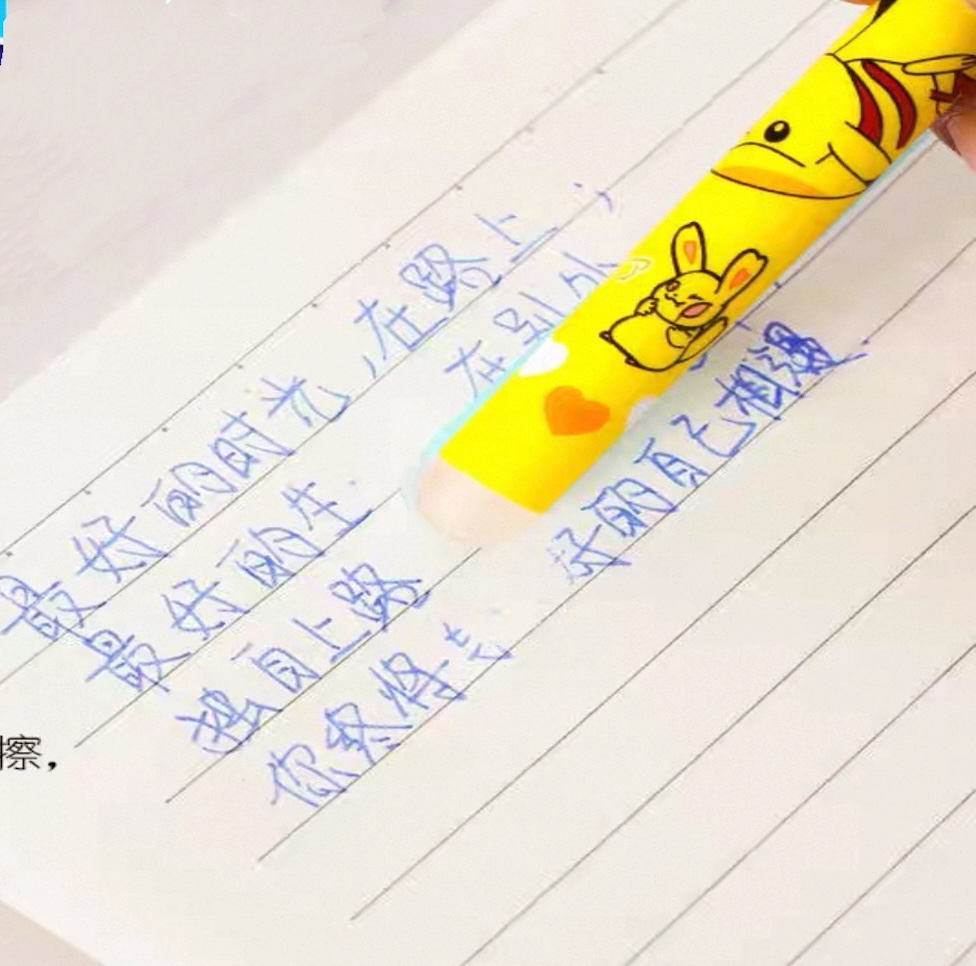 最好的时光，在路上，
最好的生 在别外
独自上路
你终将 好的自己相遇
擦，